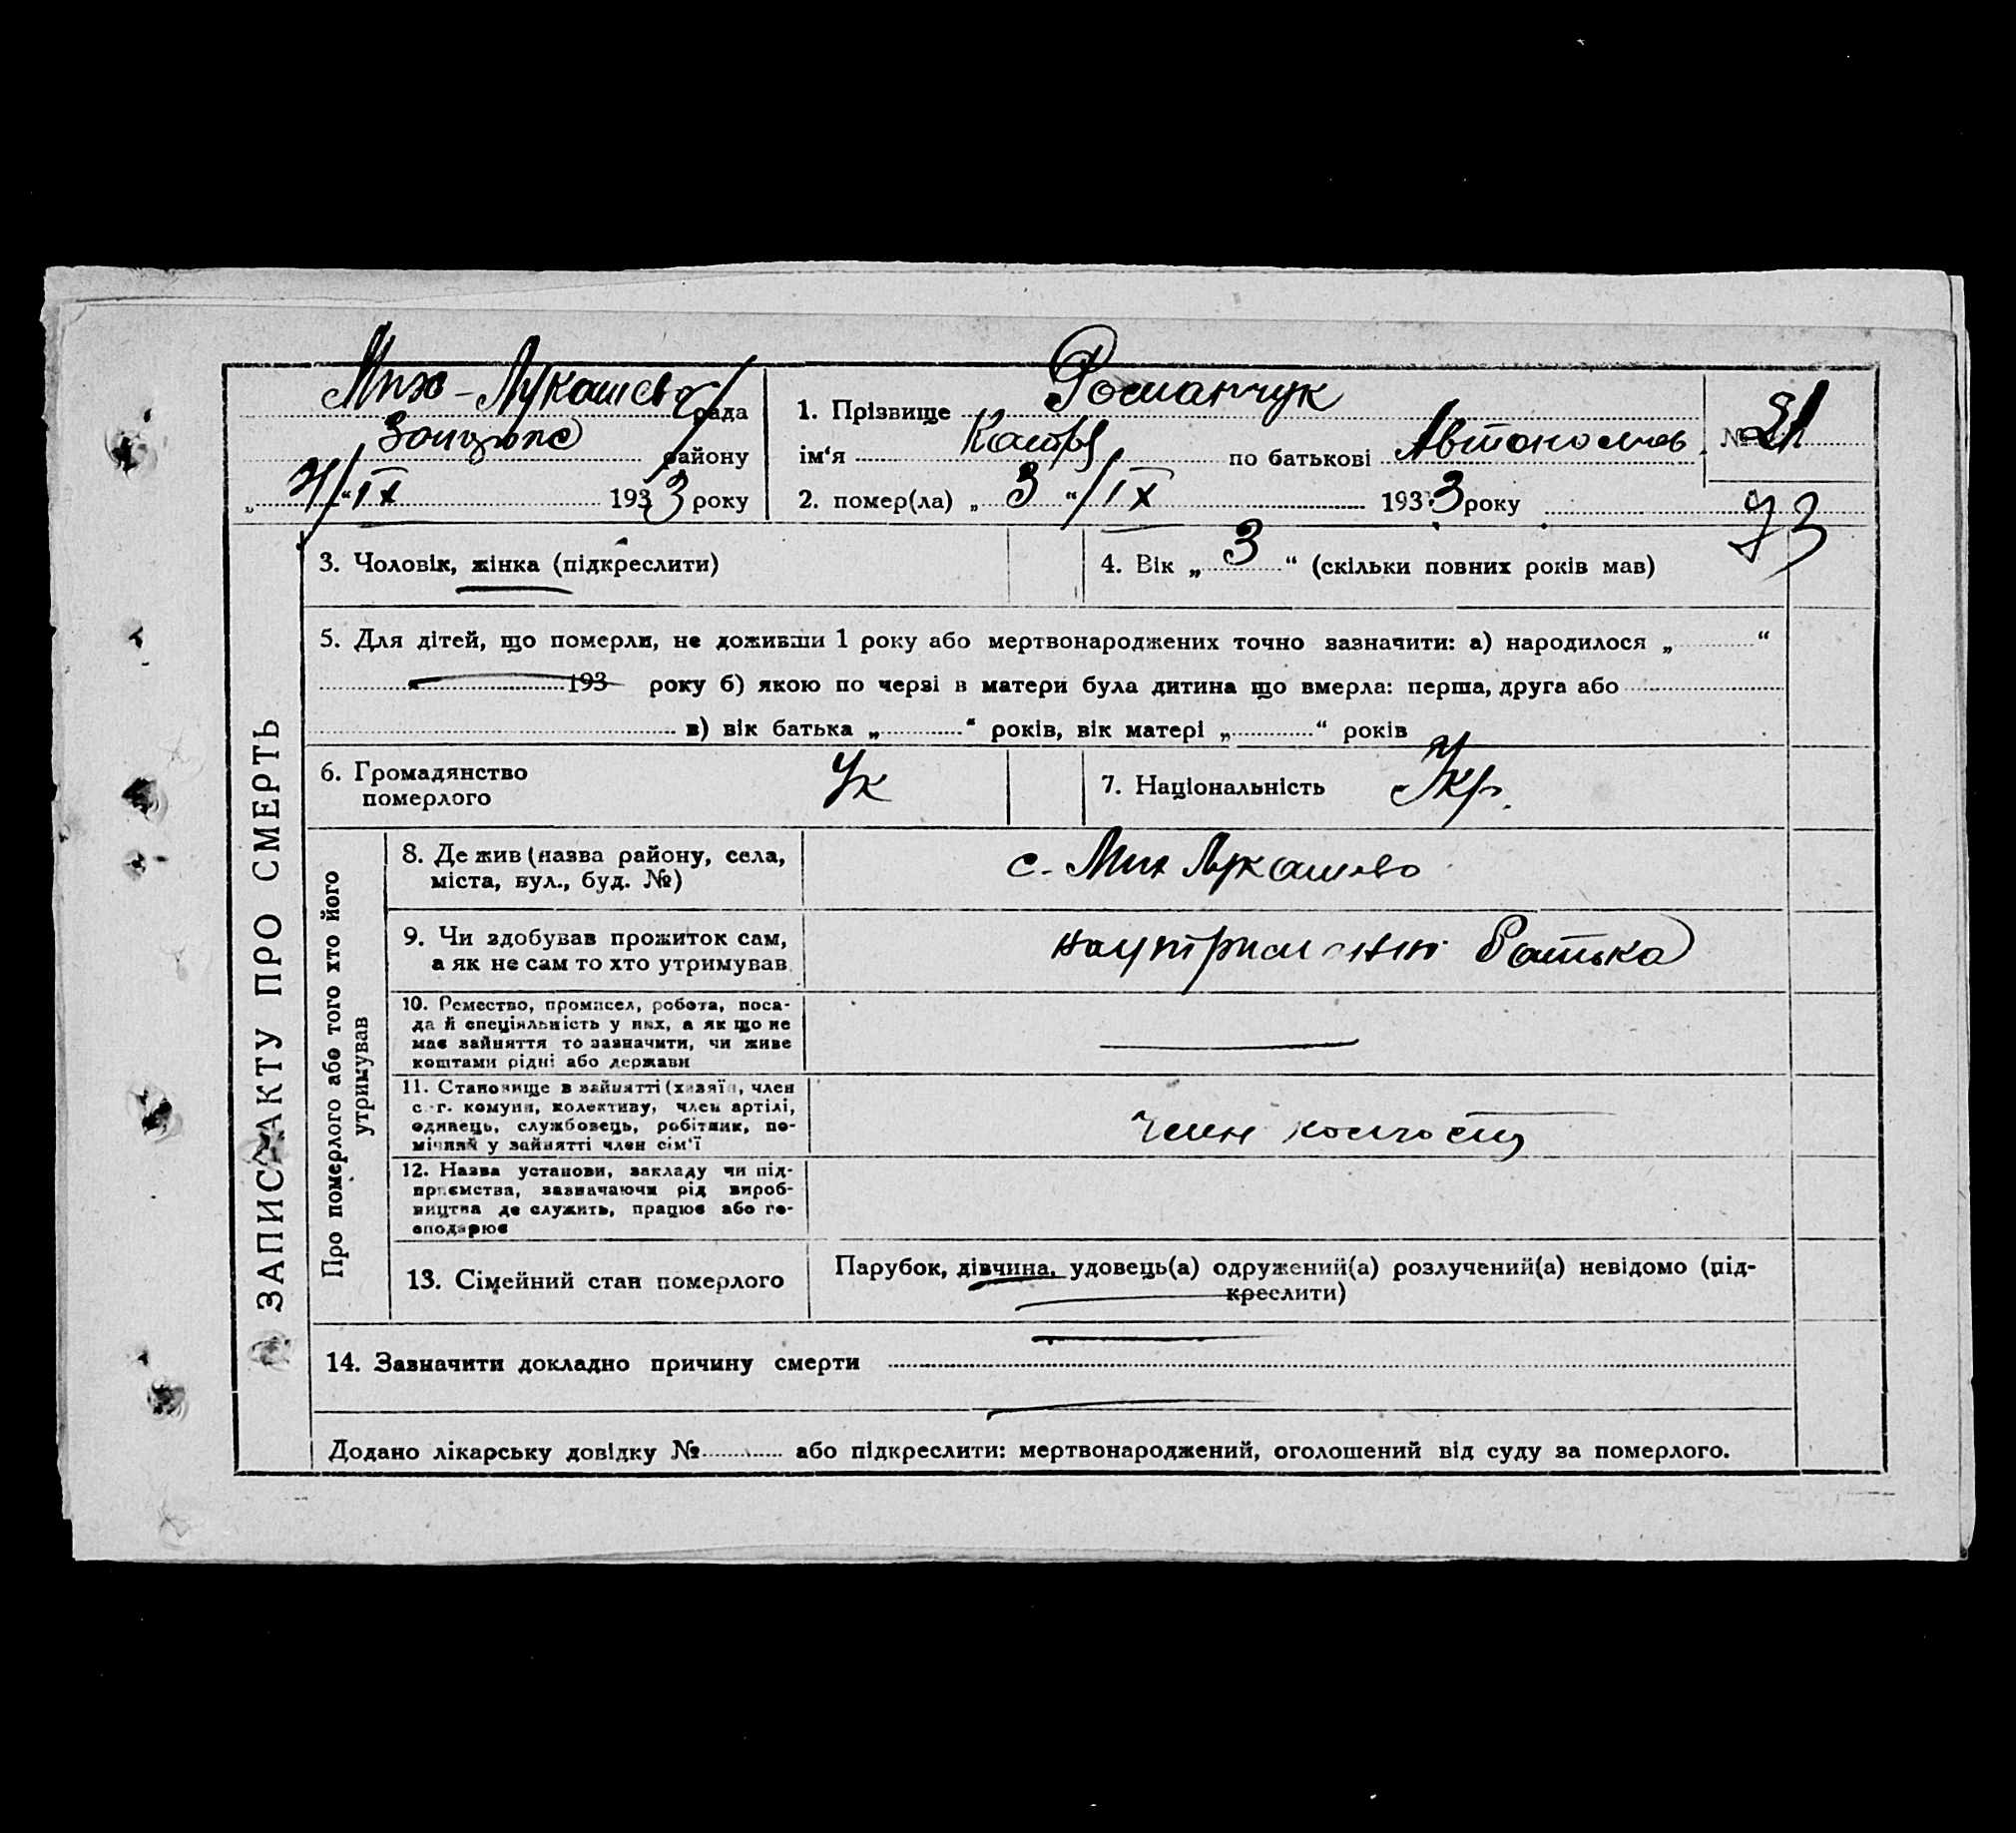 Мих-Лукашев рада
району
„ 4/“ ІХ 1933 року
1. Прізвище Романчук
ім‘я Катря по батькові Автономов
№ 21
2. помер(ла) „ 3 “/ІХ 1933 року
73
ЗАПИС АКТУ ПРО СМЕРТЬ
3. Чоловік, жінка (підкреслити)
4. Вік „ 3 “ (скільки повних років мав)
5. Для дітей, що померли, не доживши 1 року або мертвонароджених точно зазначити: а) народилося „ “
193 року б) якою по черзі в матери була дитина що вмерла: перша, друга або
в) вік батька „ “ років, вік матері „ “ років
6. Громадянство
померлого
Ук
7. Національність Укр.
Про померлого або того хто його
утримував
8. Де жив (назва району, села,
міста, вул., буд. №)
с. Мих Лукашево
9. Чи здобував прожиток сам,
а як не сам то хто утримував
на утриманні батька
10. Ремество, промисел, робота, поса-
да й спеціяльність у них, а як що не
має зайняття то зазначити, чи живе
коштами рідні або держави
11. Становище в зайнятті (хазяїн, член
с.-г. комуни, колективу, член артілі,
одинець, службовець, робітник, по-
мічний у зайнятті член сім‘ї
член колгоспу
12. Назва установи, закладу чи під-
приємства, зазначаючи рід вироб-
ництва де служить, працює або го-
сподарює
13. Сімейний стан померлого
Парубок, дівчина, удовець(а) одружений(а) розлучений(а) невідомо (під-
креслити)
14. Зазначити докладно причину смерти
Додано лікарську довідку № або підкреслити: мертвонароджений, оголошений від суду за померлого.